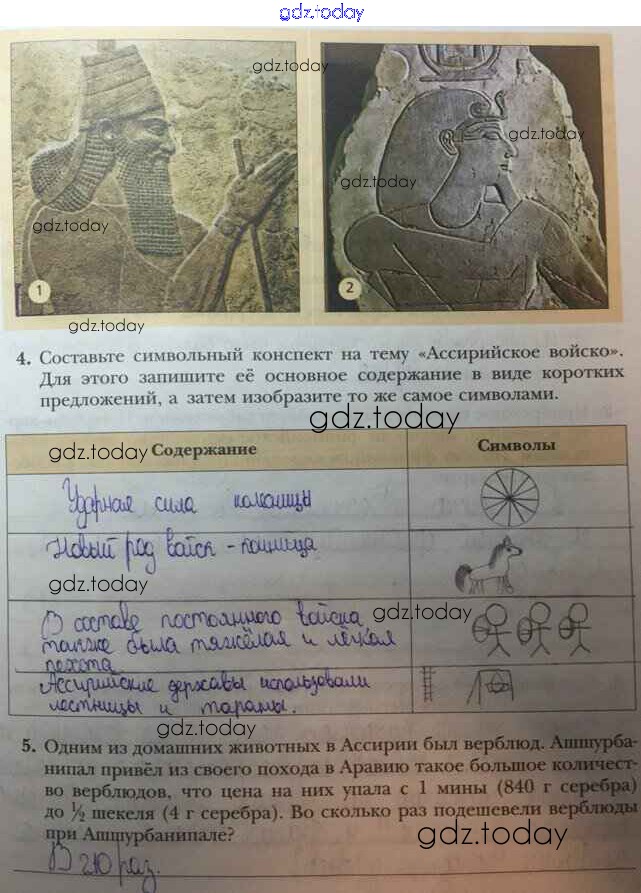 gdz.today
gdz.today
gdz.today
gdz.today
gdz.today
1
2
gdz.today
4. Составьте символьный конспект на тему «Ассирийское войско».
Для этого запишите её основное содержание в виде коротких
предложений, а затем изобразите то же самое символами.
gdz.today
gdz.today
Содержание
Символы
Ударная сила колесницы
Новый род войск - конница
gdz.today
gdz.today
В составе постоянного войска
также была тяжёлая и лёгкая
пехота
Ассирийские державы использовали
лестницы и тараны.
gdz.today
5. Одним из домашних животных в Ассирии был верблюд. Ашшурба-
нипал привёл из своего похода в Аравию такое большое количест-
во верблюдов, что цена на них упала с 1 мины (840 г серебра)
до ½ шекеля (4 г серебра). Во сколько раз подешевели верблюды
при Ашшурбанипале?
gdz.today
В 210 раз.
gdz.today